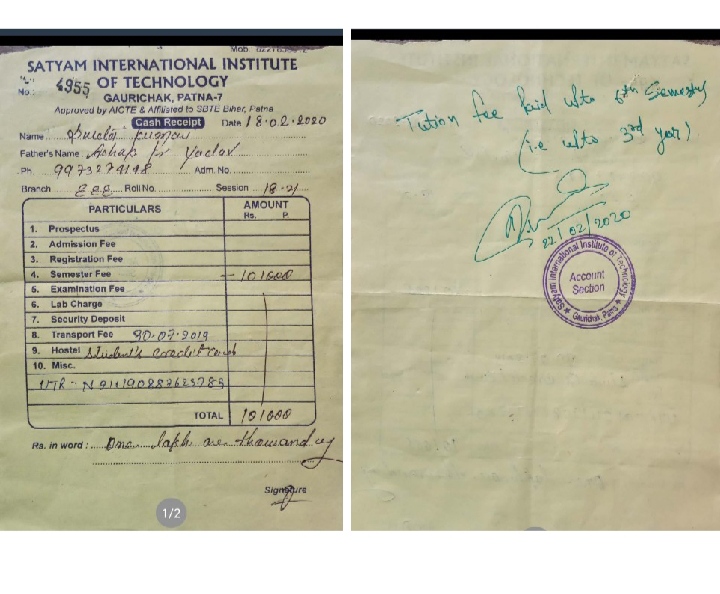 SATYAM INTERNATIONAL INSTITUTE
No. 4955 OF TECHNOLOGY
GAURICHAK, PATNA-7
Approved by AICTE & Affiliated to SBTE Bihar, Patna
Cash Receipt Date 18.02.2020
Name
Father's Name Yadav
Ph. 9973279198 Adm. No.
Branch EEE Roll No. Session 18-21
PARTICULARS AMOUNT
Rs. P.
1. Prospectus
2. Admission Fee
3. Registration Fee
4. Semester Fee 101000
5. Examination Fee
6. Lab Charge
7. Security Deposit
8. Transport Fee 30.07.2019
9. Hostel Student's credit
10. Misc.
UTR
TOTAL 101000
Rs. in word : One lakh one thousand
Signature
1/2
Tution fee Paid upto 6th Semester
(i.e upto 3rd year)
22/02/2020
Satyam International Institute of Technology
Account
Section
Gaurichak, Patna